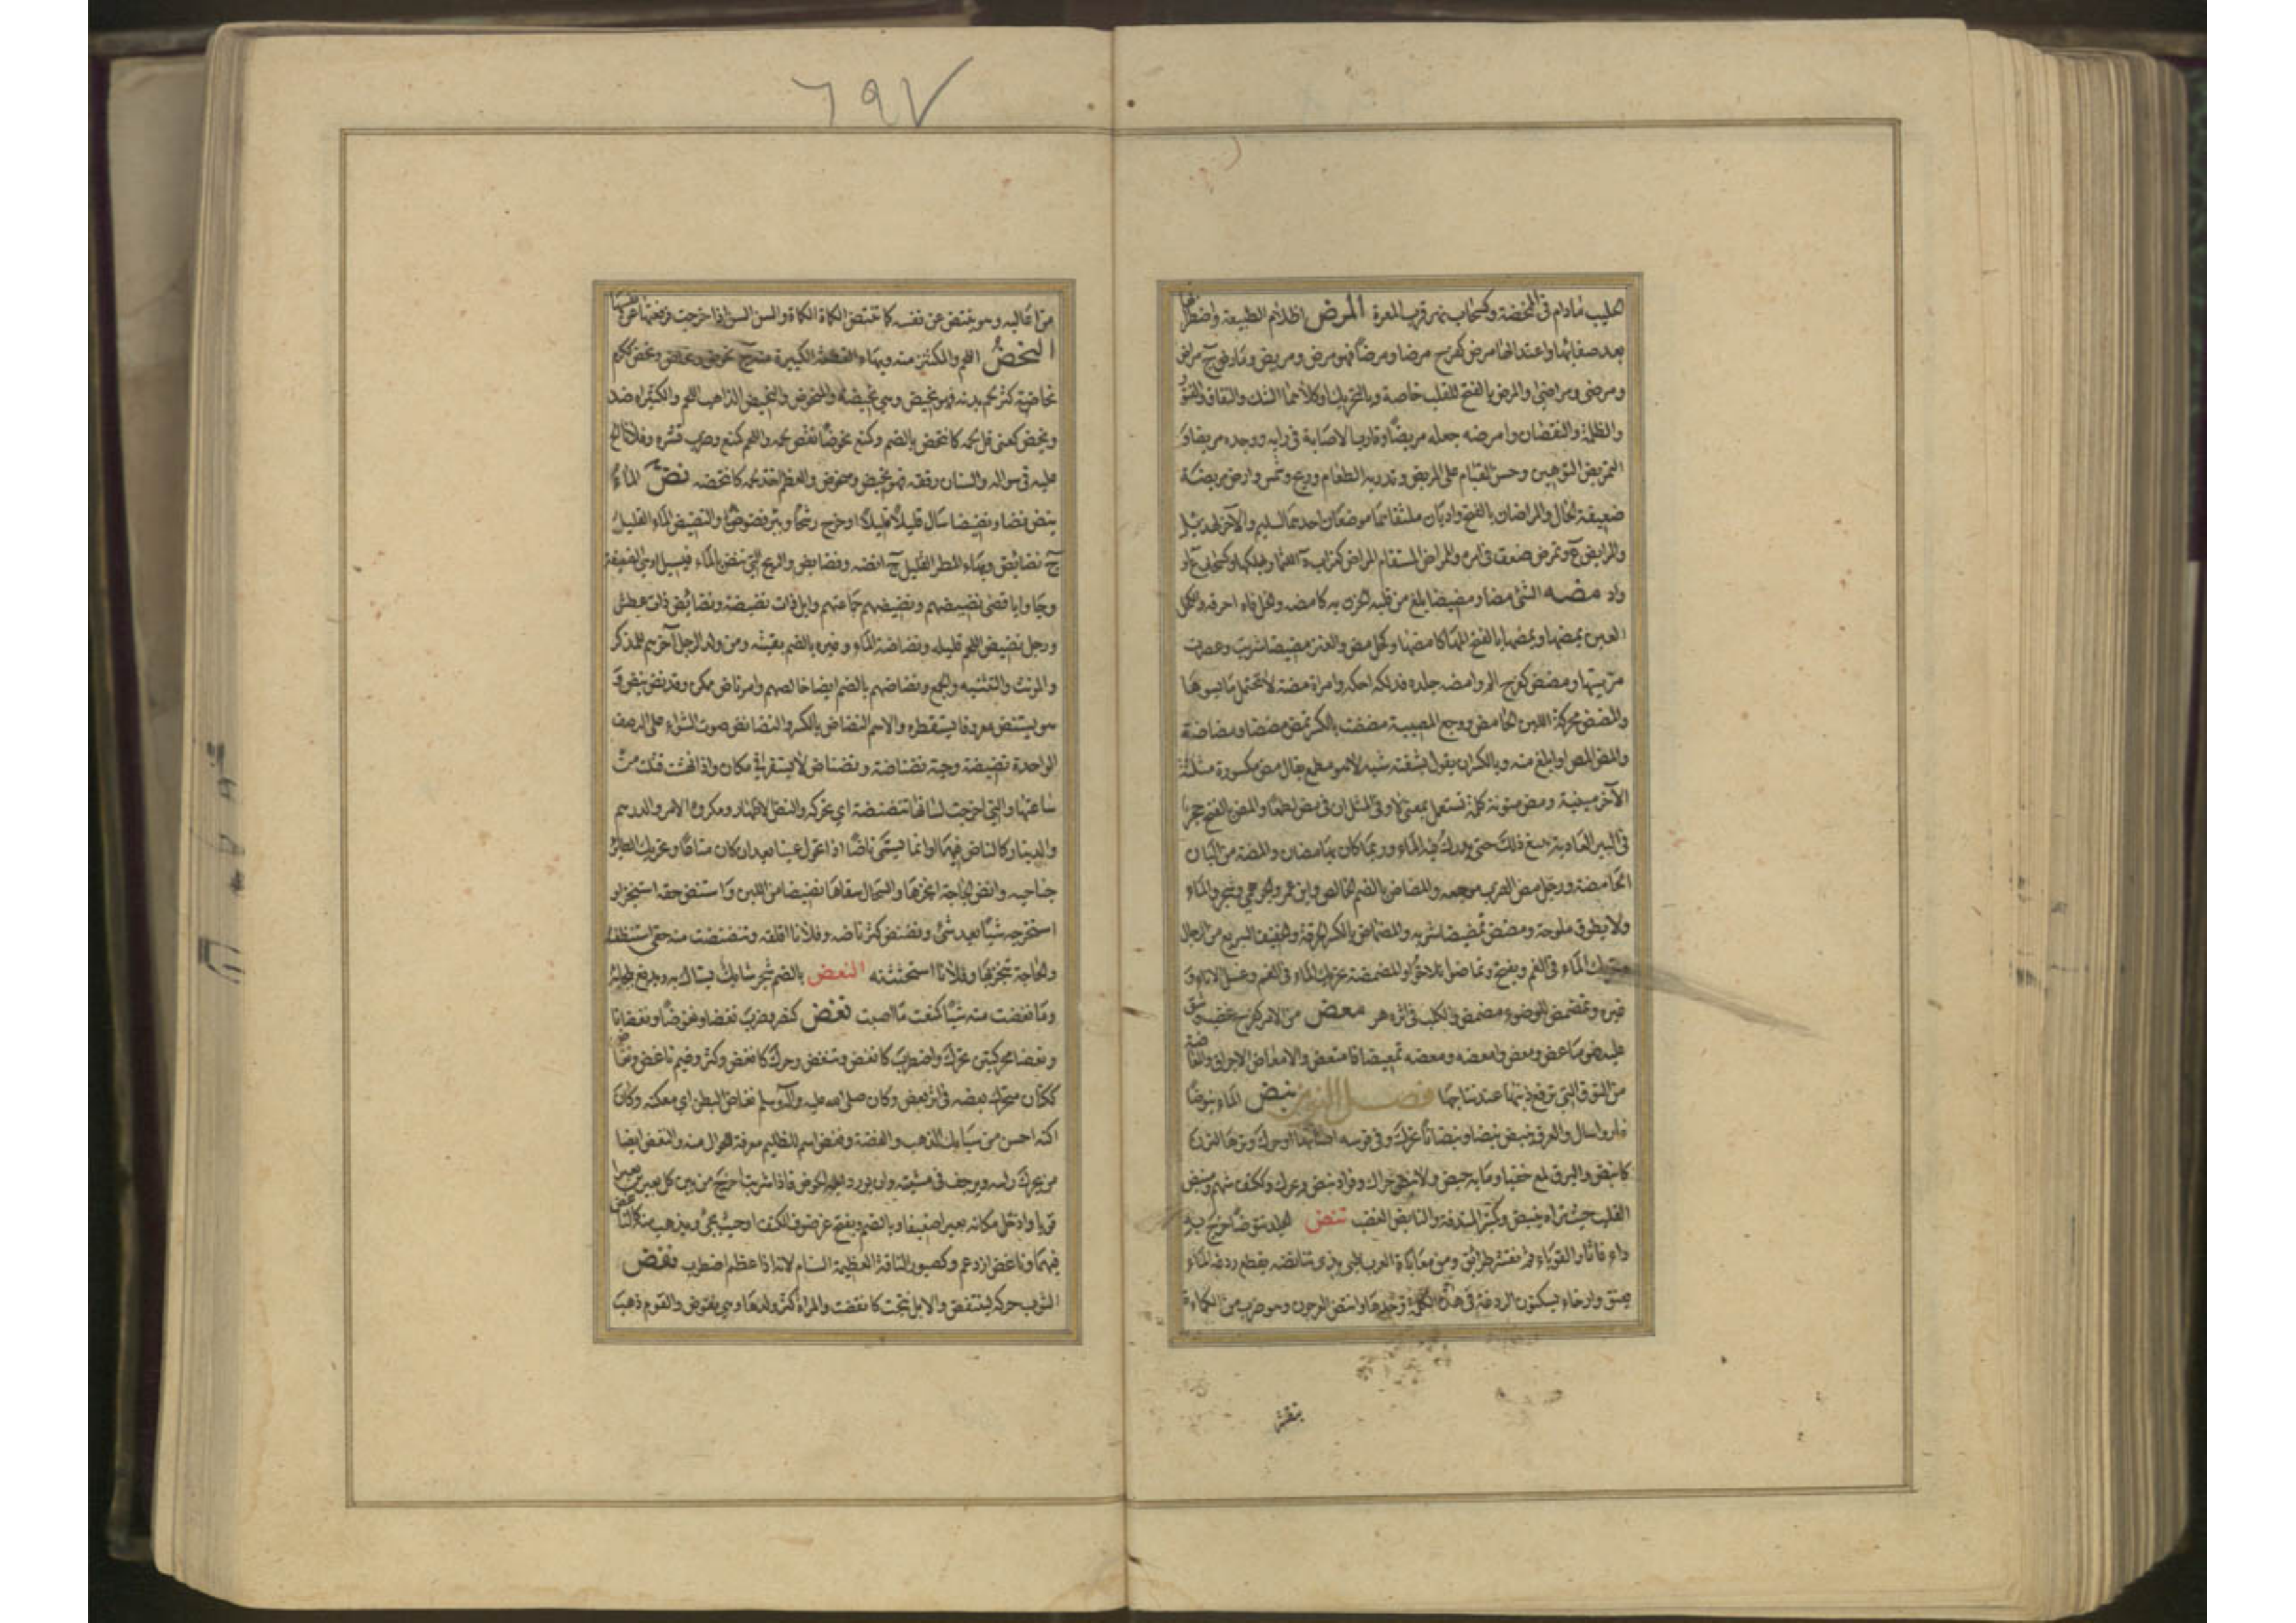 الحليب مادام في الممخضة وكسحاب نهر قرب المعرة المرض اظلام الطبيعة واضطرابها
بعد صفائها واعتدالها مرض كفرح مرضا ومرضا فهو مرض ومريض ومارض ج مراض
ومرضى ومراضى والمرض بالفتح للقلب خاصة وبالتحريك او كلاهما الشك والنفاق والفتور
والظلمة والنقصان وامرضه جعله مريضا وقارب الاصابة في رايه ووجده مريضا و
التمريض التوهين وحسن القيام على المريض وتذرية الطعام وريح وشمس وارض مريضة
ضعيفة الحال والمراضان بالفتح واديان ملتقاهما موضعان احدهما لسليم والآخر لهذيل
والمرايض ع وتمرض ضعف في امره والممراض المسقام
مضه الشئ مضا ومضيضا بلغ من قلبه الحزن به كامضه والخل فاه احرقه والكحل
العين يمضها ويمضها بالفتح المها كامضها وكحل مض والعنز مضيضا شربت وعصرت
مرميتها ومضض كفرح الم وامضه جلده فدلكه احكه وامراة مضة لا تحتمل ما يسوءها
والمضض محركة اللبن الحامض ووجع المصيبة مضضت بالكسر تمض مضضا ومضاضة
والمض المص او ابلغ منه وبالكسر ان يقول بشفته شبه لا وهو مطمع يقال مض مكسورة مثلثة
الآخر مبنية ومض منونة كلمة تستعمل بمعنى لا وفي المثل ان في مض لطمعا والمض بالفتح حجر
في البير العادية يتبع ذلك حتى يدرك فيه الماء وربما كان بها مضان والمضة من البان
الحامضة ورجل مض الضرب موجعه والمضاض بالضم الخالص وابن عمرو الجرهمي وشجر والماء
ولا يطاق ملوحة ومضض تمضيضا شربه والمضماض بالكسر الحرقة والخفيف السريع من الرجال
وتحريك الماء في الفم ويفتح وتماضا تلاحوا والمضمضة تحريك الماء في الفم وغسل الاناء و
غيره وتمضمض للوضوء مضمض والكلب في اثره هر معض من الامر كفرح غضب وشق
عليه فهو ماعض ومعض وامعضه ومعضه تمعيضا فامتعض والامعاض الاحراق والماعضة
من النوق التي ترفع ذنبها عند نتاجها فصل النون نبض الماء نبوضا
غار او سال والعرق ينبض نبضا ونبضانا تحرك وفي قوسه اصاتها او حرك وترها لترن
كانبض والبرق لمع خفيا وما به حبض ولا نبض حراك وفؤاد نبض
القلب حيث تراه ينبض وكمنبر المندفة والنابض الغضب نتض الجلد نتوضا خرج به
داء فاثار القوباء ثم تقشر طرائق ومن معاياة العرب
بسكون الردغة في هذه الكلمة وحدها وانتض العرجون وهو ضرب من الكماة
ينقشر
٦٩٧
من اعاليه وهو ينتض عن نفسه كما تنتض الكماة الكماة والسن السن اذا خرجت فرفعتها عن نفسها
النحض اللحم والمكتنز منه وبهاء القطعة الكبيرة منه ج نحوض ونحاض ونحض ككرم
نحاضة كثر لحم بدنه فهو نحيض وهي نحيضة والمنحوض والنحيض الذاهب اللحم والكثيراه ضد
ونحض كعنى قل لحمه كانتحض بالضم وكنع نحوضا نقص لحمه واللحم كمنع وضرب قشره وفلانا الح
عليه في سواله والسنان رققه فهو نحيض ومنحوض والعظم اخذ لحمه كانتحضه نض الماء
ينض نضا ونضيضا سال قليلا قليلا او خرج رشحا وبير نضوض والنضيض الماء القليل
ج نضائض وبهاء المطر القليل ج انضة ونضايض والريح التي تنض بالماء فيسيل او هي الضعيفة
وجاوا باقصى نضيضهم ونضيضتهم جماعتهم وابل ذات نضيضة ونضائض ذات عطش
ورجل نضيض اللحم قليله ونضاضة الماء وغيره بالضم بقيته ومن ولد الرجل آخرهم للمذكر
والمونث والتثنيه والجمع ونضاضهم بالضم ايضا خالصهم وامر ناض ممكن وقد نض ينض و
هو يستنض معروفا يستقطره والاسم النضاض بالكسر والنضائض صوت الشواء على الرضف
الواحدة نضيضة وحية نضناضة ونضناض لا يستقر في مكان واذا نهشت قتلت من
ساعتها والتي اخرجت لسانها تنضنضه اي تحركه والنض الاظهار ومكروه الامر والدرهم
والدينار كالناض فيهما او انما يسمى ناضا اذا تحول عينا بعد ان كان متاعا وتحريك الطائر
جناحيه وانض الحاجة انجزها والسخال سقاها نضيضا من اللبن واستنض حقه استنجزه او
استخرجه شيئا بعد شئ ونضنض كثر ناضه وفلانا اقلقه وتنضنضت منه حقي استنظفته
والحاجة تنجزتها وفلانا استحثثته النعض بالضم شجر شايك يستاك به ويدبغ بلحائه
وما نعضت منه شيئا كمنعت ما اصبت نغض كنصر وضرب نغضا ونغوضا ونغضانا
ونغضا محركتين تحرك واضطرب كانغض وتنغض وحرك كانغض وكثر وغيم ناغض ونغاض
ككتان متحرك بعضه في اثر بعض وكان صلى الله عليه وآله وسلم نغاض البطن اي معكنه وكان
عكنه احسن من سبايك الذهب والفضة ونغض اسم للظليم معرفة للجوال منه والنغض ايضا
من يحرك راسه ويرجف في مشيته وان يورد ابله الحوض فاذا شربت اخرج من بين كل بعيرين بعيرا
قويا وادخل مكانه بعيرا ضعيفا وبالضم ويفتح غرضوف الكتف او حيث يجئ ويذهب منه كالناغض
فيهما وناغض ازدحم وكصبور الناقة العظيمة السنام لانه اذا عظم اضطرب نفض
الثوب حركه لينتفض والابل نتجت كانفضت والمراة كثر ولدها وهي نفوض والقوم ذهب